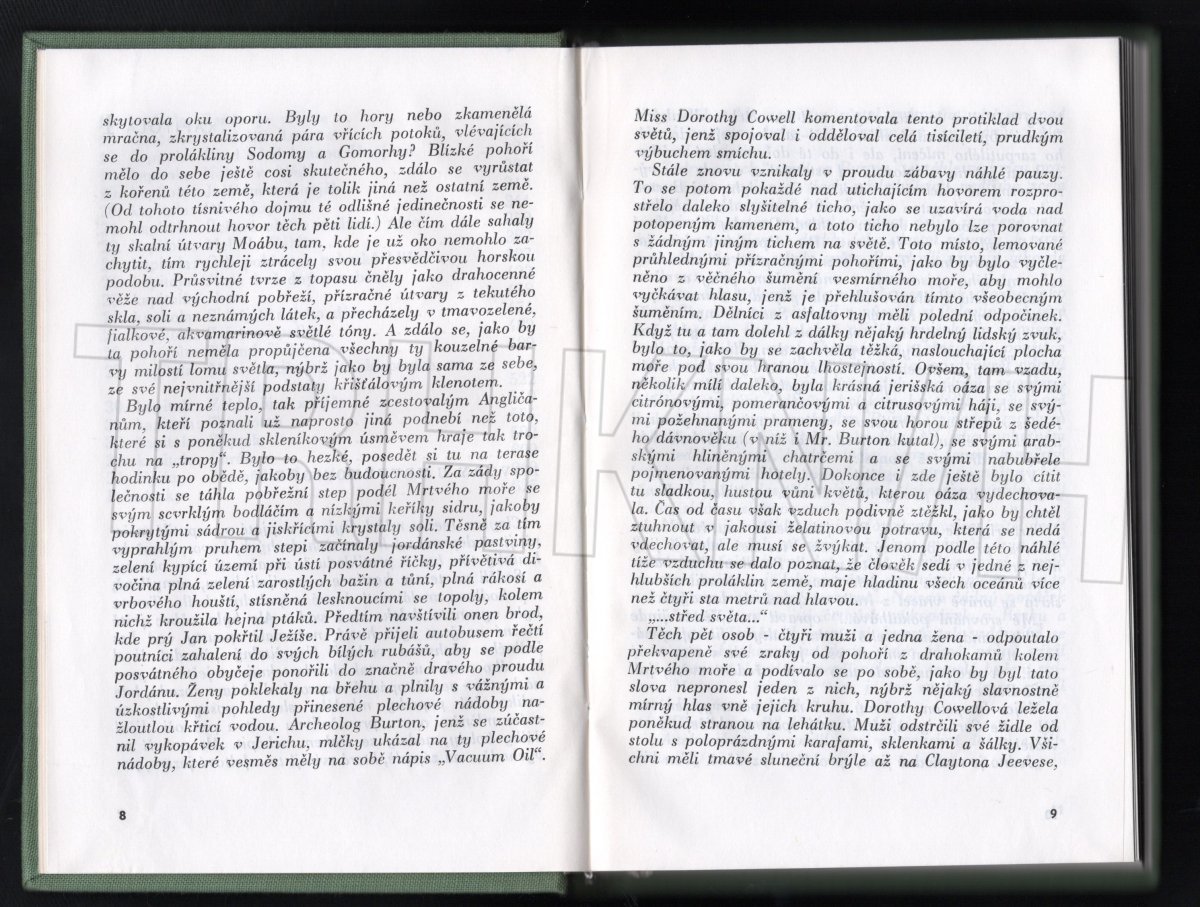 skytovala oku oporu. Byly to hory nebo zkamenělá
mračna, zkrystalizovaná pára vřících potoků, vlévajících
se do prolákliny Sodomy a Gomorhy? Blízké pohoří
mělo do sebe ještě cosi skutečného, zdálo se vyrůstat
z kořenů této země, která je tolik jiná než ostatní země.
(Od tohoto tísnivého dojmu té odlišné jedinečnosti se ne-
mohl odtrhnout hovor těch pěti lidí.) Ale čím dále sahaly
ty skalní útvary Moábu, tam, kde je už oko nemohlo za-
chytit, tím rychleji ztrácely svou přesvědčivou horskou
podobu. Průsvitné tvrze z topasu čněly jako drahocenné
věže nad východní pobřeží, přízračné útvary z tekutého
skla, soli a neznámých látek, a přecházely v tmavozelené,
fialkové, akvamarinově světlé tóny. A zdálo se, jako by
ta pohoří neměla propůjčena všechny ty kouzelné bar-
vy milostí lomu světla, nýbrž jako by byla sama ze sebe,
ze své nejvnitřnější podstaty křišťálovým klenotem.
Bylo mírné teplo, tak příjemné zcestovalým Angliča-
nům, kteří poznali už naprosto jiná podnebí než toto,
které si s poněkud skleníkovým úsměvem hraje tak tro-
chu na „tropy“. Bylo to hezké, posedět si tu na terase
hodinku po obědě, jakoby bez budoucnosti. Za zády spo-
lečnosti se táhla pobřežní step podél Mrtvého moře se
svým scvrklým bodláčím a nízkými keříky sidru, jakoby
pokrytými sádrou a jiskřícími krystaly soli. Těsně za tím
vyprahlým pruhem stepi začínaly jordánské pastviny,
zelení kypící území při ústí posvátné říčky, přívětivá di-
vočina plná zelení zarostlých bažin a tůní, plná rákosí a
vrbového houští, stísněná lesknoucími se topoly, kolem
nichž kroužila hejna ptáků. Předtím navštívili onen brod,
kde prý Jan pokřtil Ježíše. Právě přijeli autobusem řečtí
poutníci zahalení do svých bílých rubášů, aby se podle
posvátného obyčeje ponořili do značně dravého proudu
Jordánu. Ženy poklekaly na břehu a plnily s vážnými a
úzkostlivými pohledy přinesené plechové nádoby na-
žloutlou křticí vodou. Archeolog Burton, jenž se zúčast-
nil vykopávek v Jerichu, mlčky ukázal na ty plechové
nádoby, které vesměs měly na sobě nápis „Vacuum Oil“.
8
Miss Dorothy Cowell komentovala tento protiklad dvou
světů, jenž spojoval i odděloval celá tisíciletí, prudkým
výbuchem smíchu.
Stále znovu vznikaly v proudu zábavy náhlé pauzy.
To se potom pokaždé nad utichajícím hovorem rozpro-
střelo daleko slyšitelné ticho, jako se uzavírá voda nad
potopeným kamenem, a toto ticho nebylo lze porovnat
s žádným jiným tichem na světě. Toto místo, lemované
průhlednými přízračnými pohořími, jako by bylo vyčle-
něno z věčného šumění vesmírného moře, aby mohlo
vyčkávat hlasu, jenž je přehlušován tímto všeobecným
šuměním. Dělníci z asfaltovny měli polední odpočinek.
Když tu a tam dolehl z dálky nějaký hrdelný lidský zvuk,
bylo to, jako by se zachvěla těžká, naslouchající plocha
moře pod svou hranou lhostejností. Ovšem, tam vzadu,
několik mílí daleko, byla krásná jerišská oáza se svými
citrónovými, pomerančovými a citrusovými háji, se svý-
mi požehnanými prameny, se svou horou střepů z šedé-
ho dávnověku (v níž i Mr. Burton kutal), se svými arab-
skými hliněnými chatrčemi a se svými nabubřele
pojmenovanými hotely. Dokonce i zde ještě bylo cítit
tu sladkou, hustou vůni květů, kterou oáza vydechova-
la. Čas od času však vzduch podivně ztěžkl, jako by chtěl
ztuhnout v jakousi želatinovou potravu, která se nedá
vdechovat, ale musí se žvýkat. Jenom podle této náhlé
tíže vzduchu se dalo poznat, že člověk sedí v jedné z nej-
hlubších proláklin země, maje hladinu všech oceánů více
než čtyři sta metrů nad hlavou.
„...střed světa...“
Těch pět osob - čtyři muži a jedna žena - odpoutalo
překvapeně své zraky od pohoří z drahokamů kolem
Mrtvého moře a podívalo se po sobě, jako by byl tato
slova nepronesl jeden z nich, nýbrž nějaký slavnostně
mírný hlas vně jejich kruhu. Dorothy Cowellová ležela
poněkud stranou na lehátku. Muži odstrčili své židle od
stolu s poloprázdnými karafami, sklenkami a šálky. Vši-
chni měli tmavé sluneční brýle až na Claytona Jeevese,
9
TRHKNIH